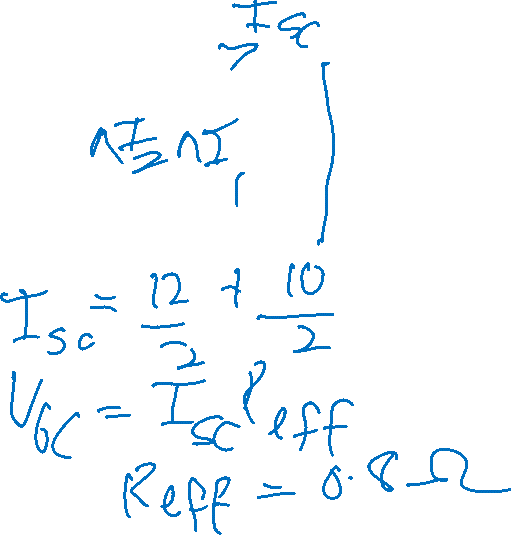 Isc
↑I2 ↑I1
Isc = 12/2 + 10/2
Voc = Isc Reff
Reff = 0.8 Ω